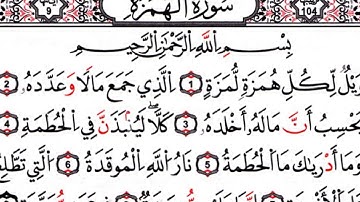 سُورَةُ الْهُمَزَةِ
104
9
بِسْمِ اللَّهِ الرَّحْمَٰنِ الرَّحِيمِ
وَيْلٌ لِّكُلِّ هُمَزَةٍ لُّمَزَةٍ ١ الَّذِي جَمَعَ مَالًا وَعَدَّدَهُ ٢
يَحْسَبُ أَنَّ مَالَهُ أَخْلَدَهُ ٣ كَلَّا ۖ لَيُنۢبَذَنَّ فِي الْحُطَمَةِ ٤
وَمَا أَدْرَاكَ مَا الْحُطَمَةُ ٥ نَارُ اللَّهِ الْمُوقَدَةُ ٦ الَّتِي تَطَّلِعُ